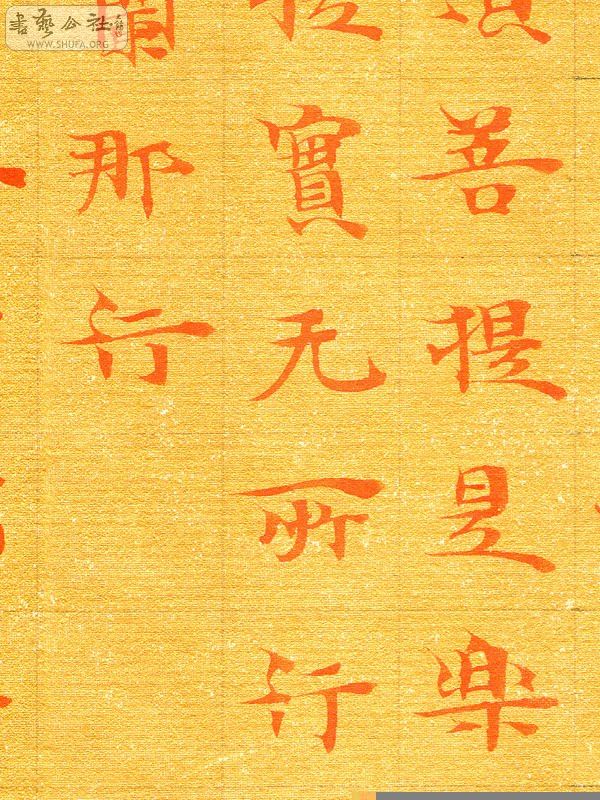 須菩提是樂
提實无所行
蘭那行
書藝公社
WWW.SHUFA.ORG